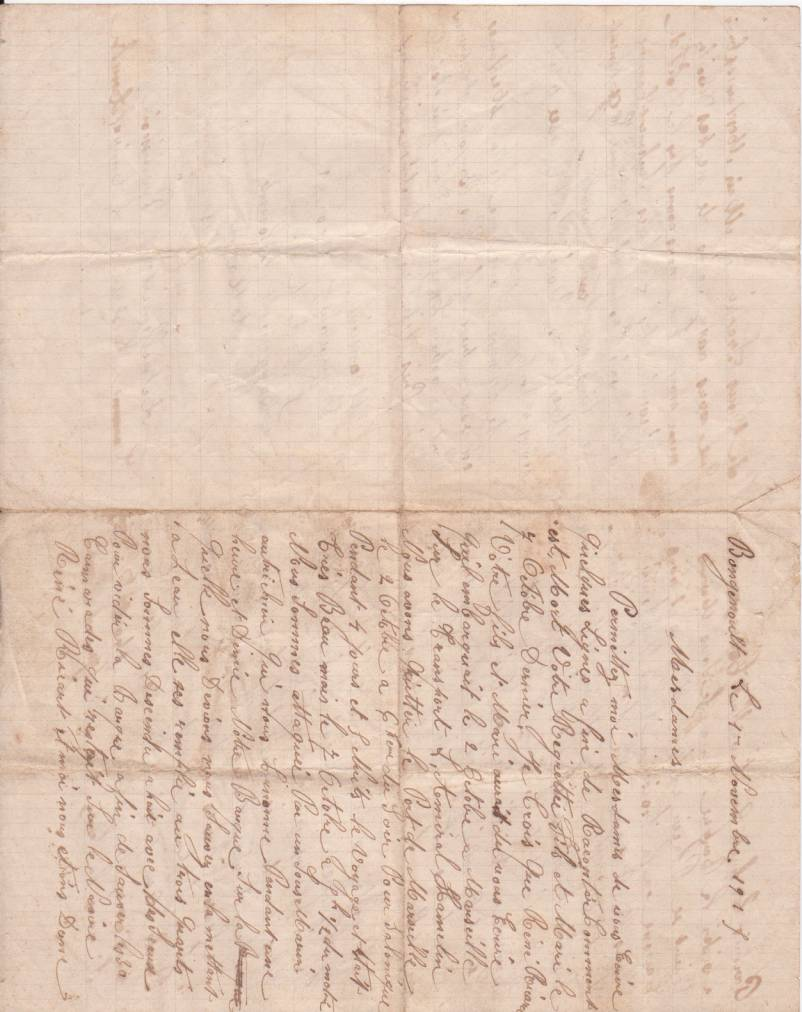 Le 1er Novembre, 1917
Mesdames
Permettez moi Mesdames de vous Ecrire
quelques Lignes a fin de Raconter Comment
est Mort Votre Regretté Fils et Mari le
7 Octobre Dernier, Je Crois Que René
Votre fils et Mari aurait du vous Ecrire
qu'il embarquait le 2 Octobre a Marseille
sur le Transport L'Amiral Hamelin
Nous avons quitter le Port de Marseille
le 2 Octobre a Hre du Soir Pour Salonique
Pendant 4 jours et nuits le Voyage
très Beau mais le 7 Octobre a
Nous Sommes attaqués Par un Sous Marin
autrichien qui nous Pendant une
heure et Demie Notre Barque Sur la
quelle nous Devions nous Sauver en la mettant
a L'eau elle ses remplie au trois quarts
nous Sommes Descendu a huit avec des
Pour vider la Barque a fin de Sauver
Camarades qui restait Sur le Navire
René et moi nous etions Dans